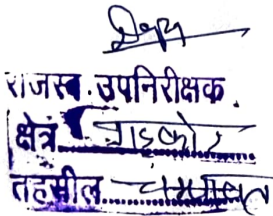 राजस्व उपनिरीक्षक
क्षेत्र गडकोट
तहसील चम्पावत